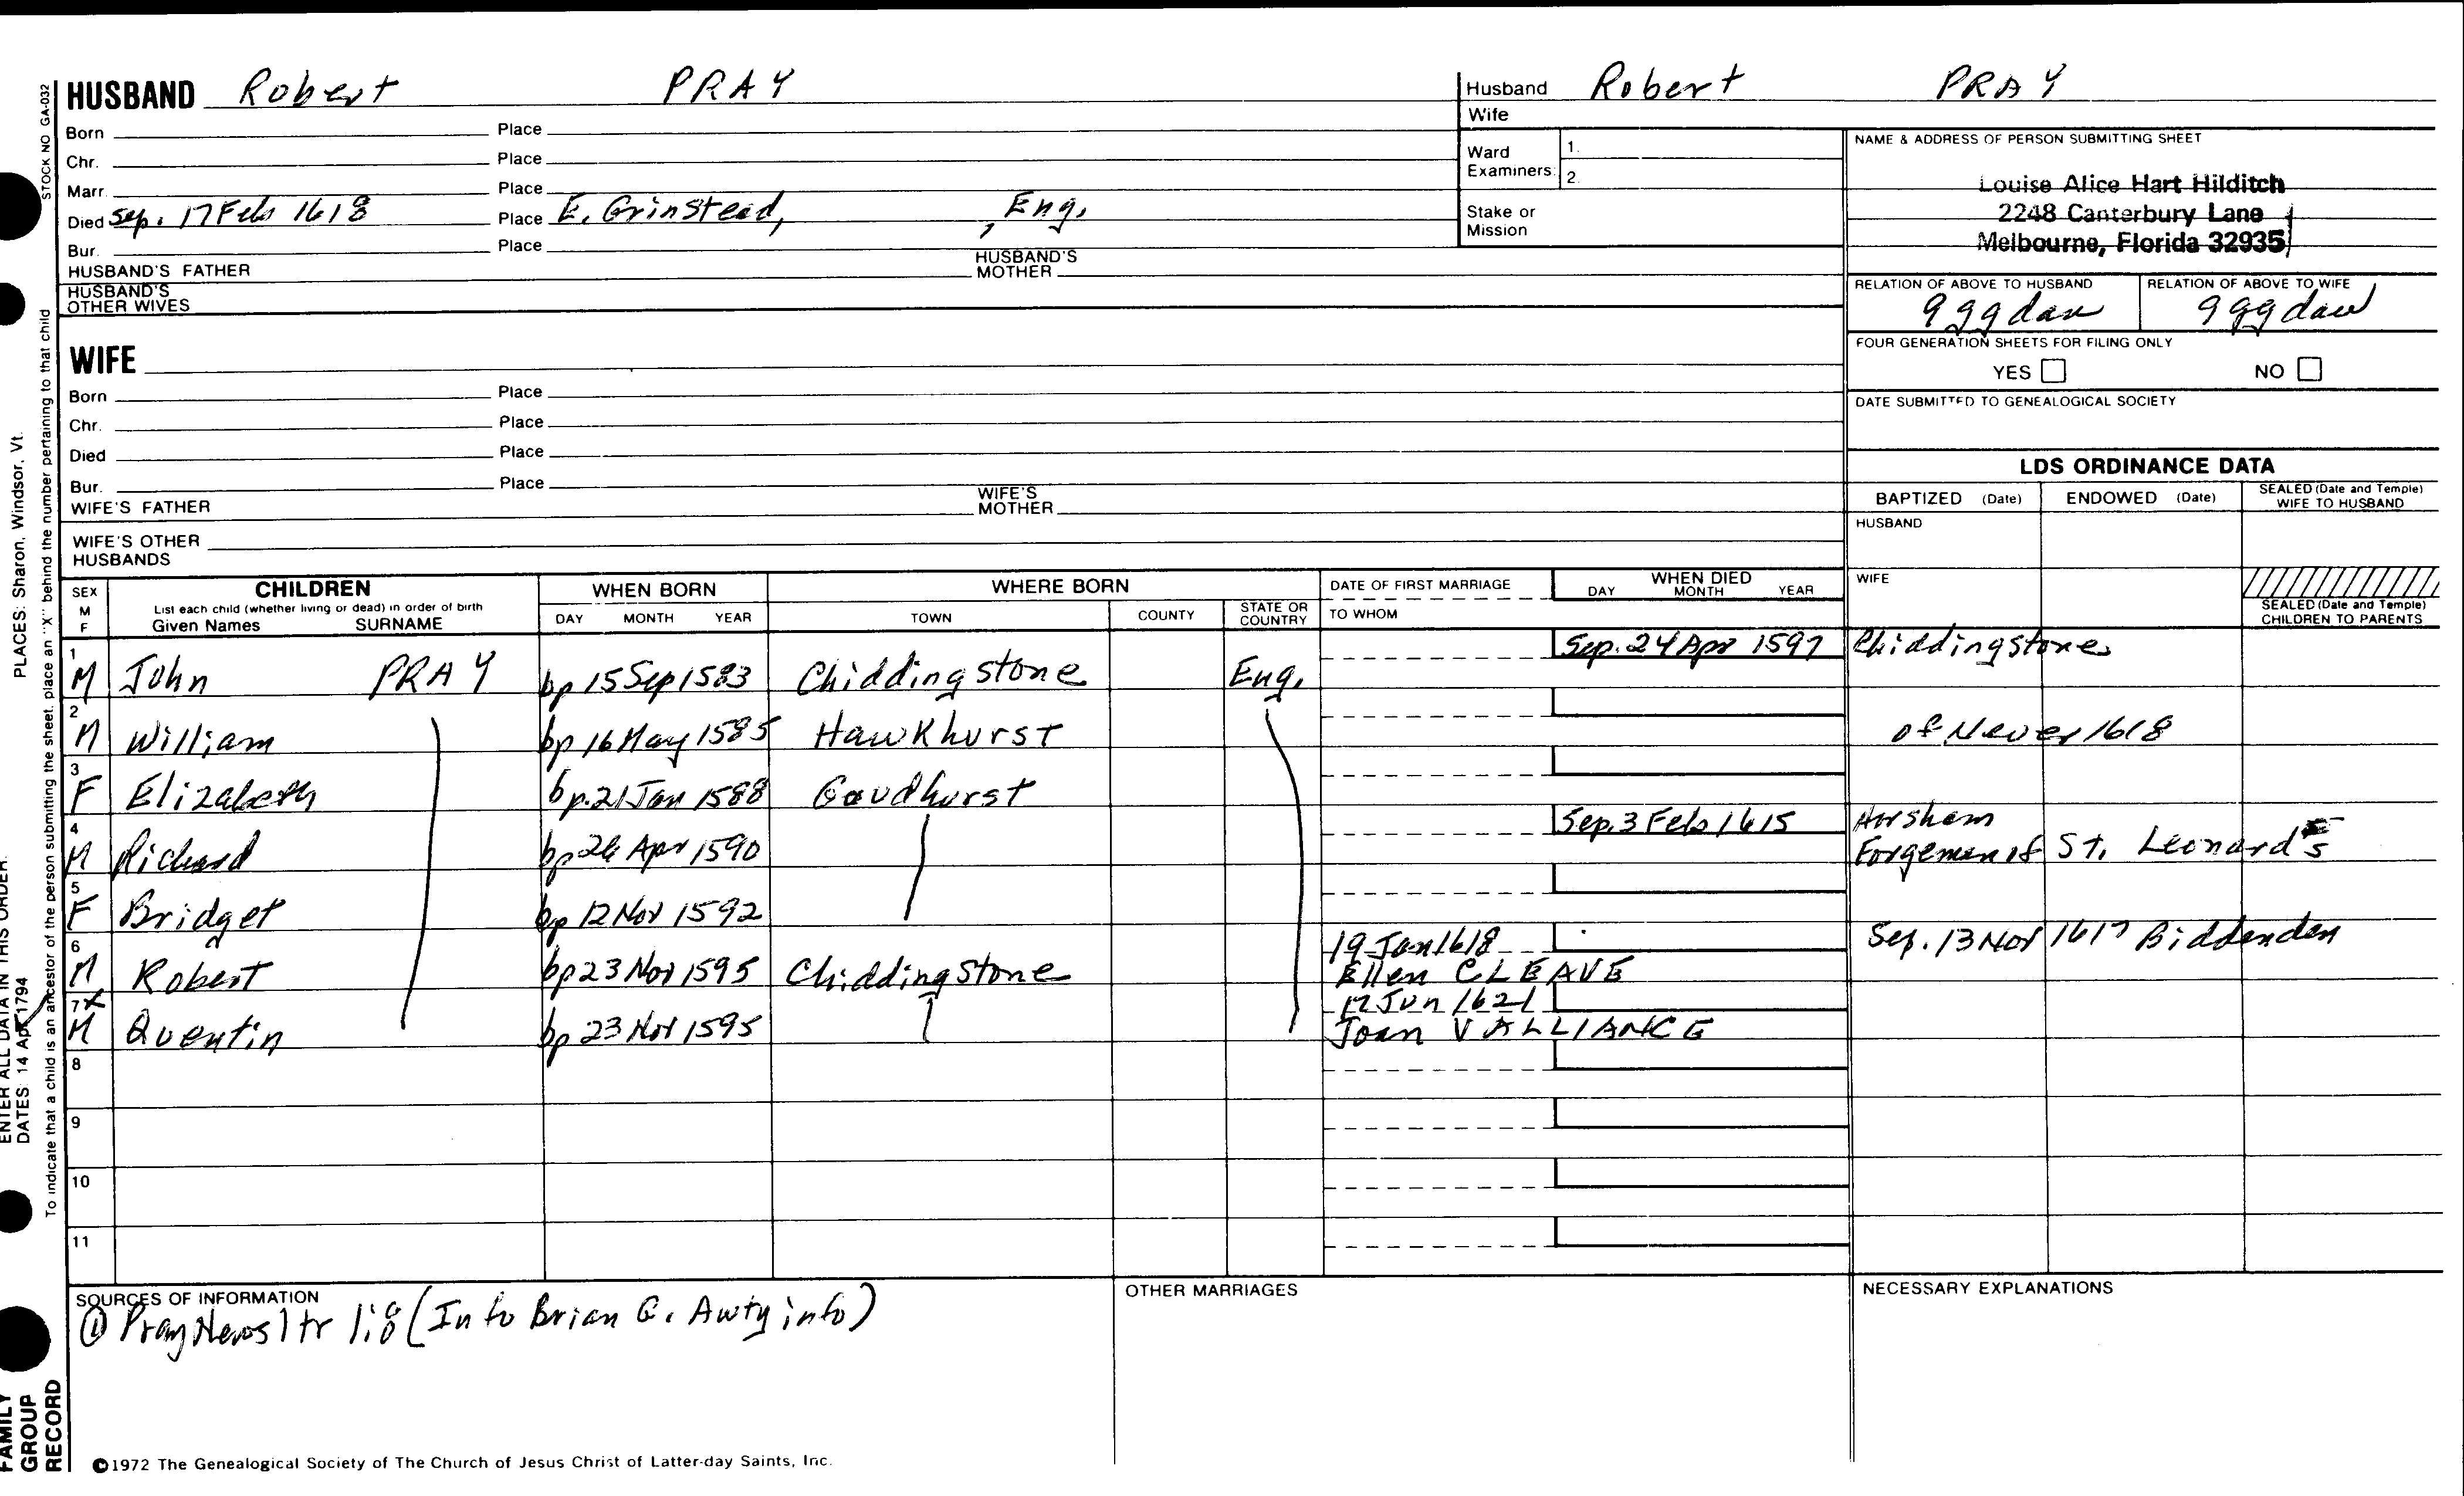 HUSBAND Robert PRAY
Born Place
Chr. Place
Marr. Place
Died Sep. 17 Feb 1618 Place E. Grinstead, , Eng.
Bur. Place
HUSBAND'S FATHER HUSBAND'S MOTHER
HUSBAND'S OTHER WIVES
WIFE
Born Place
Chr. Place
Died Place
Bur. Place
WIFE'S FATHER WIFE'S MOTHER
WIFE'S OTHER HUSBANDS
Husband Robert PRAY
Wife
Ward Examiners: 1.
2.
Stake or Mission
NAME & ADDRESS OF PERSON SUBMITTING SHEET
Louise Alice Hart Hilditch
2248 Canterbury Lane
Melbourne, Florida 32935
RELATION OF ABOVE TO HUSBAND RELATION OF ABOVE TO WIFE
9ggdau 9ggdau
FOUR GENERATION SHEETS FOR FILING ONLY
YES NO
DATE SUBMITTED TO GENEALOGICAL SOCIETY
LDS ORDINANCE DATA
BAPTIZED (Date) ENDOWED (Date) SEALED (Date and Temple) WIFE TO HUSBAND
HUSBAND
WIFE
SEALED (Date and Temple) CHILDREN TO PARENTS
SEX M F CHILDREN WHEN BORN WHERE BORN DATE OF FIRST MARRIAGE WHEN DIED
List each child (whether living or dead) in order of birth
Given Names SURNAME DAY MONTH YEAR TOWN COUNTY STATE OR COUNTRY TO WHOM DAY MONTH YEAR
1 M John PRAY bp 15 Sep 1583 Chiddingstone Eng. Sep. 24 Apr 1597 Chiddingstone
2 M William bp 16 May 1585 Hawkhurst of Never 1618
3 F Elizabeth bp. 21 Jan 1588 Goudhurst
4 M Richard bp 26 Apr 1590 Sep. 3 Feb 1615 Horsham
Forgeman of St. Leonard's
5 F Bridget bp 12 Nov 1592
6 M Robert bp 23 Nov 1595 Chiddingstone 19 Jan 1618 Sep. 13 Nov 1617 Biddenden
Ellen CLEAVE
7 X M Quentin bp 23 Nov 1595 12 Jun 1621
Joan VALLIANCE
8
9
10
11
SOURCES OF INFORMATION
① Pray Newsltr 1:8 (Info Brian G. Awty info)
OTHER MARRIAGES
NECESSARY EXPLANATIONS
©1972 The Genealogical Society of The Church of Jesus Christ of Latter-day Saints, Inc.
STOCK NO GA-032
To indicate that a child is an ancestor of the person submitting the sheet, place an "X" behind the number pertaining to that child
PLACES: Sharon, Windsor, Vt.
ENTER ALL DATA IN THIS ORDER:
DATES: 14 Apr 1794
FAMILY GROUP RECORD